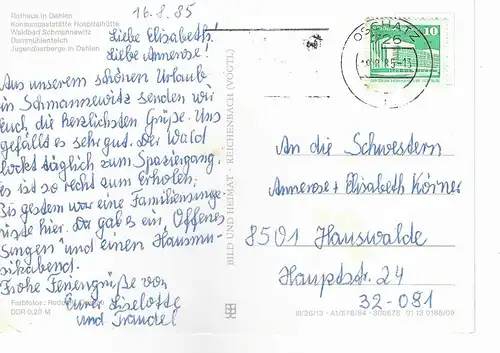 Rathaus in Dahlen
Konsumgaststätte Hospitalhütte
Waldbad Schmannewitz
Dammühlenteich
Jugendherberge in Dahlen
16.8.85
Liebe Elisabeth!
Liebe Annerose!
Aus unserem schönen Urlaub
in Schmannewitz senden wir
Euch die herzlichsten Grüße. Uns
gefällt es sehr gut. Der Wald
lockt täglich zum Spaziergang,
es ist so recht zum Erholen.
Bis gestern war eine Familiensinge-
rüste hier. Da gab es ein „Offenes
Singen" und einen Hausmu-
sikabend.
Frohe Feriengrüße von
Eurer Liselotte
und Traudel
Farbfotos:
DDR 0,20 M
BILD UND HEIMAT · REICHENBACH (VOGTL)
OSCHATZ
726
85-13
10
An die Schwestern
Annerose + Elisabeth Körner
8501 Hauswalde
Hauptstr. 24
32-081
III/26/13 · A1/576/84 · 300675 01 13 0186/09